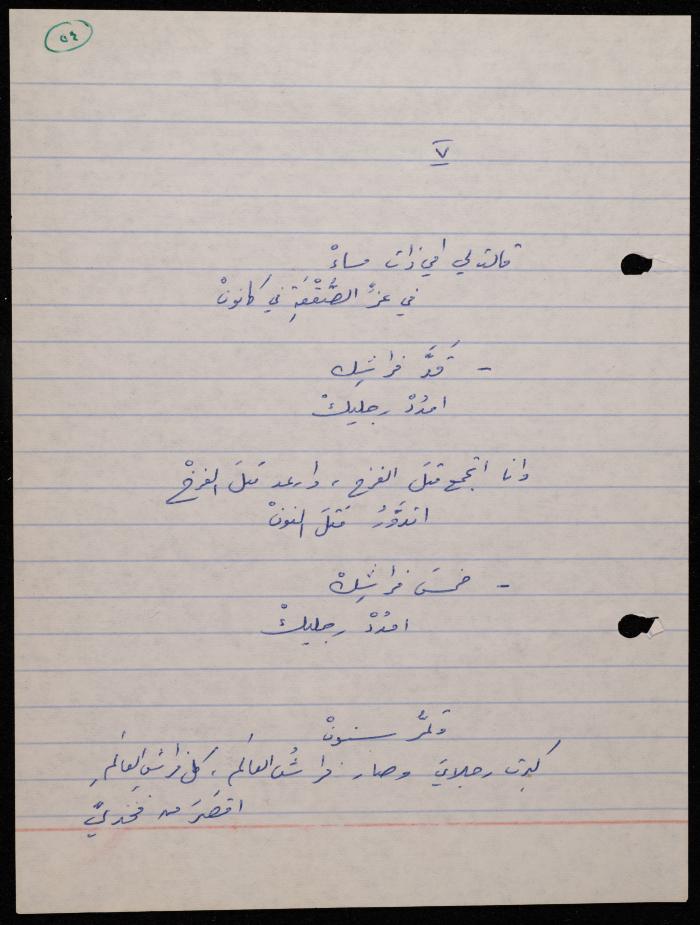 ٥٤
٧
قالت لي امي ذات مساءْ
في عزِّ الصَّقْعَةِ في كانونْ
- قَدَّ فراشِك
امدُدْ رجليكْ
وانا اتجمع مثلَ الفرخ، وارعد مثلَ الفرخْ
اتدوَّرُ مَثلَ النونْ
- فراشِكْ
امدُدْ رجليكْ
وتمرُّ سنونْ
كبرت رجلايَ وصار فراشُ العالَم، كل فراشِ العالَمِ
اقصَرَ من فخذيَّ